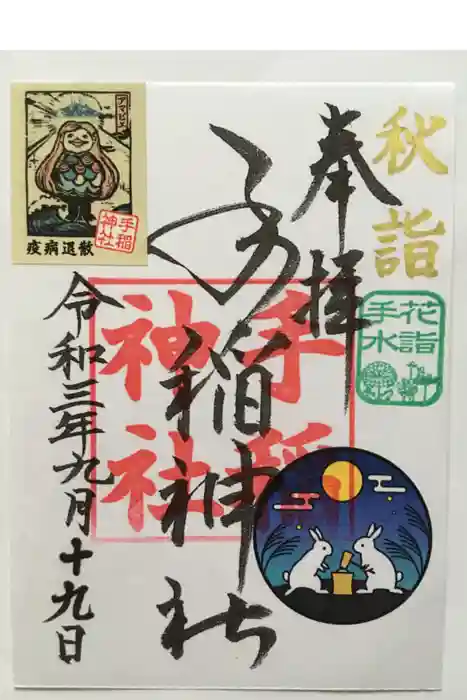 秋詣
花詣
手水
奉拝
手稲神社
手稲
神社
令和三年九月十九日
アマビエ
手稲
神社
疫病退散